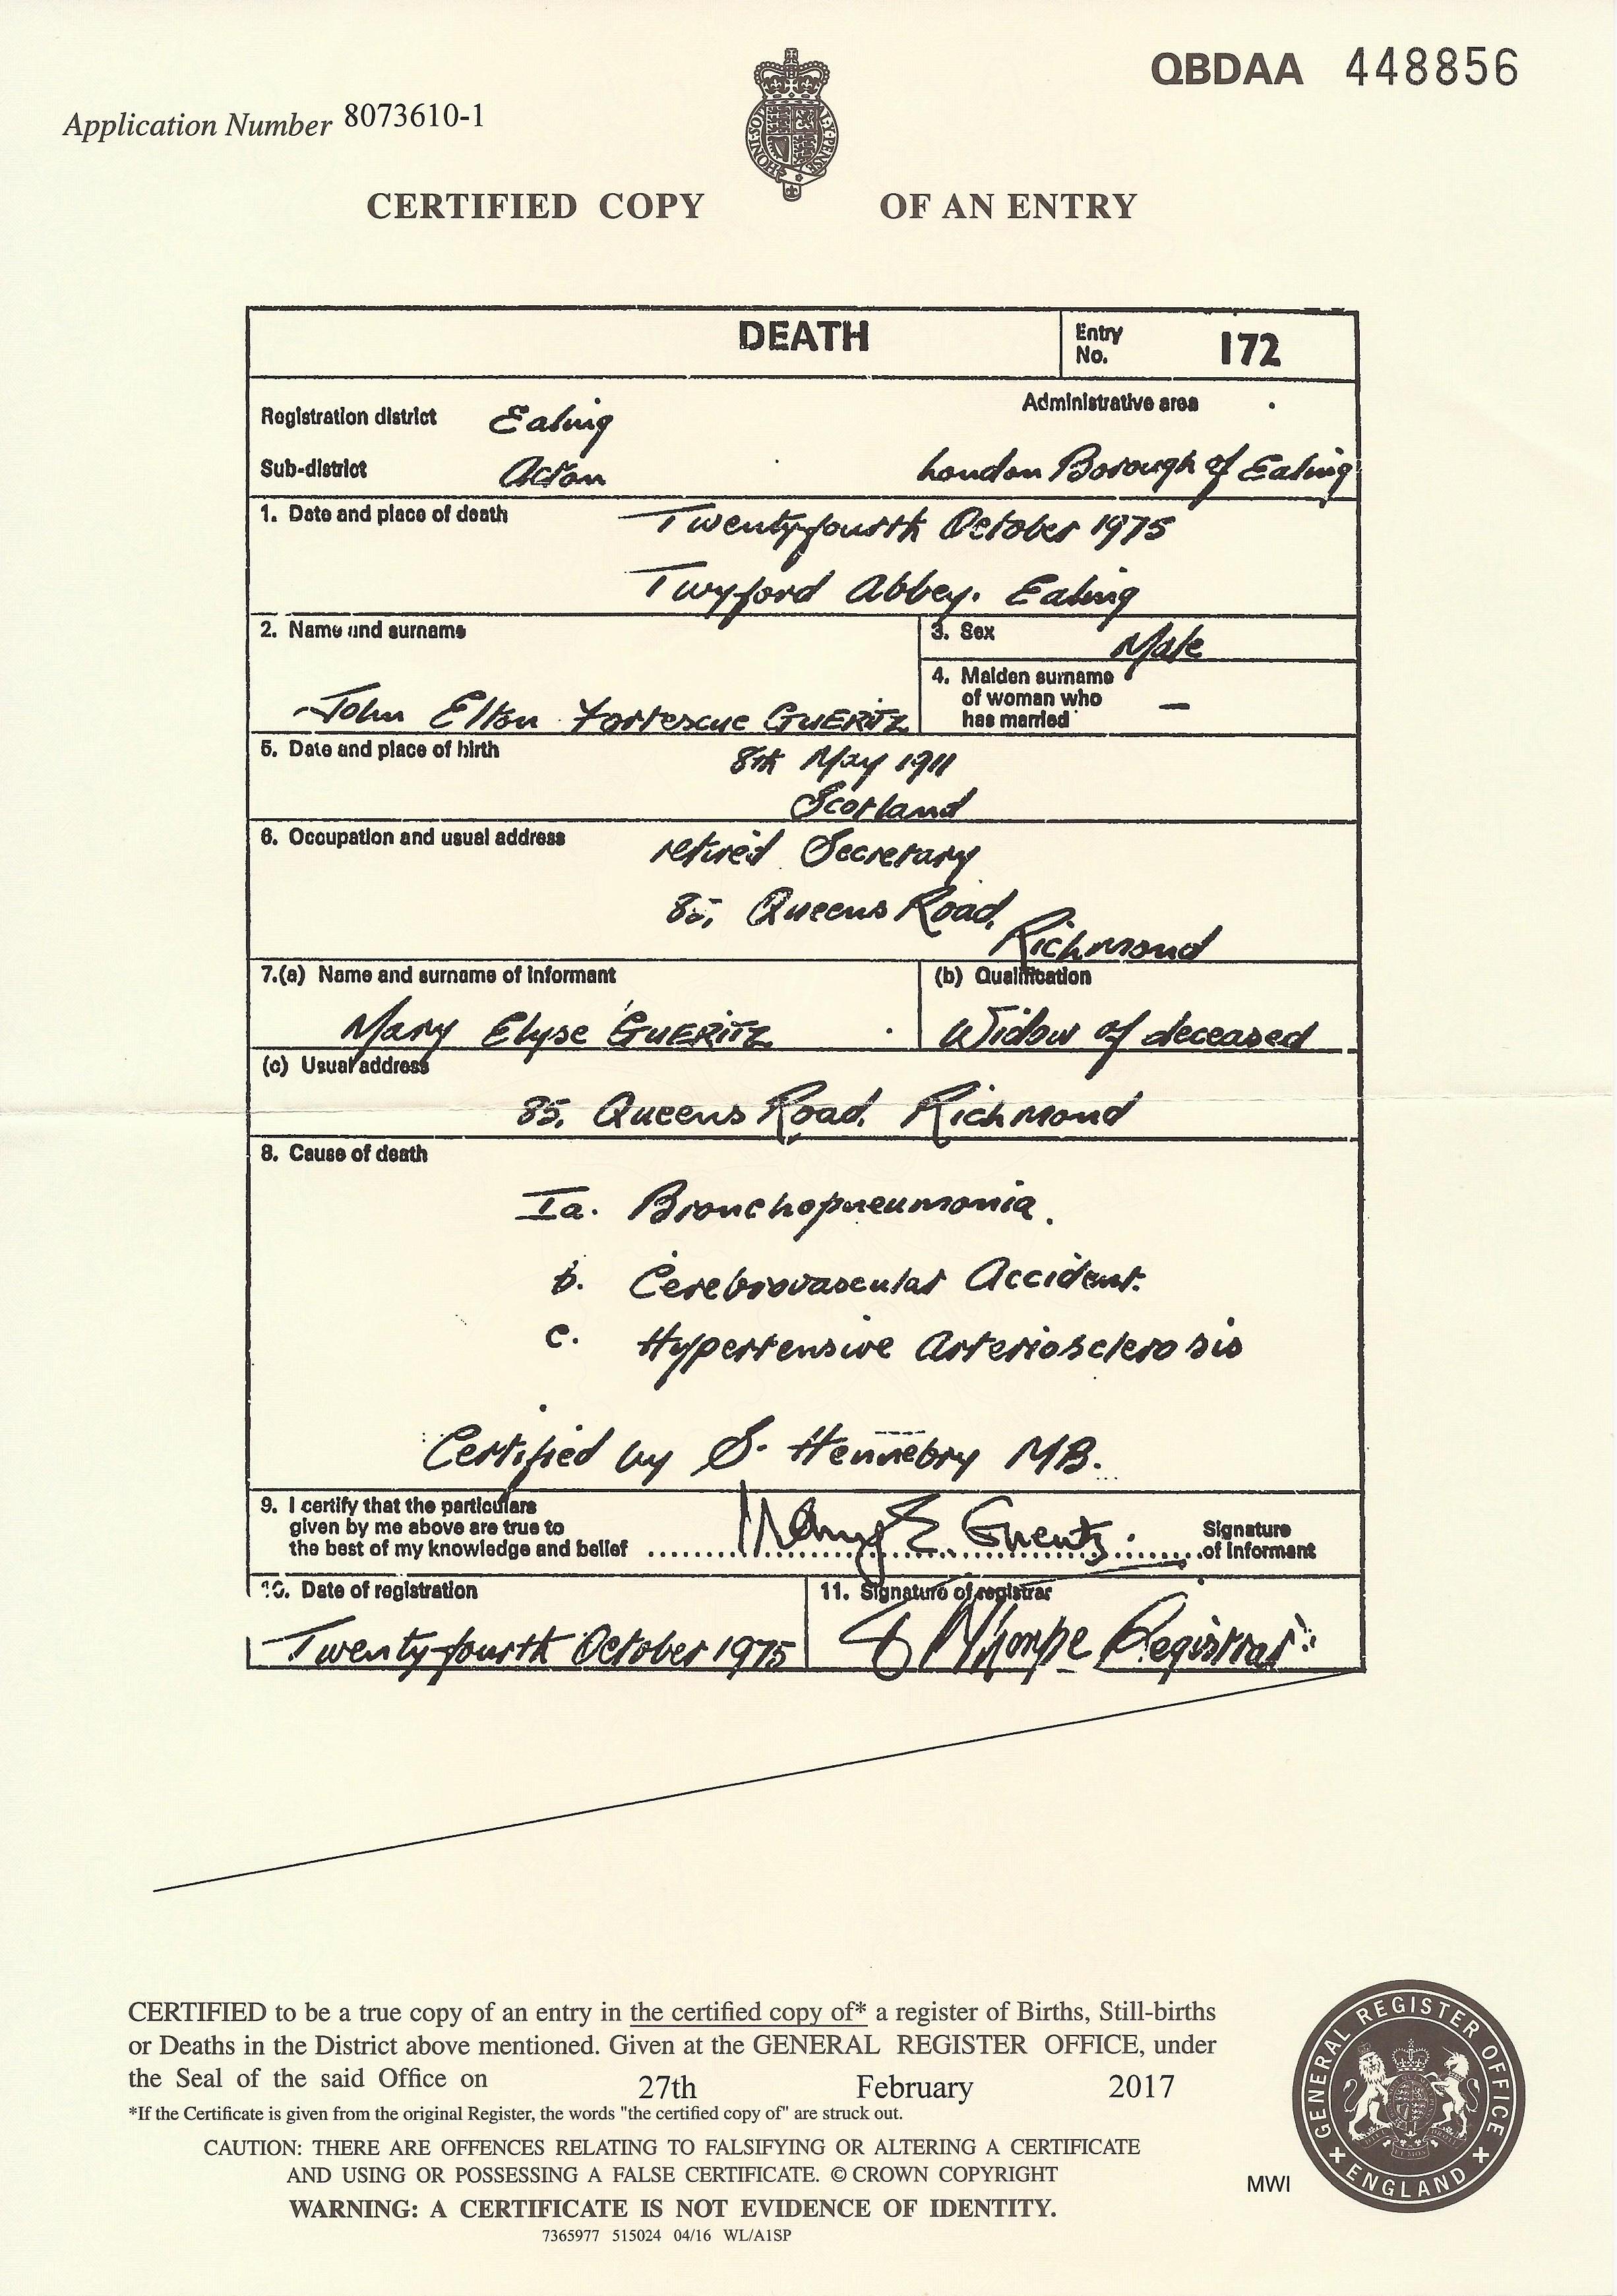 QBDAA 448856
Application Number 8073610-1
CERTIFIED COPY OF AN ENTRY
DEATH
Entry No. 172
Registration district Ealing
Administrative area
Sub-district Acton
London Borough of Ealing
1. Date and place of death Twentyfourth October 1975
Twyford Abbey. Ealing
2. Name and surname
John Elton Fortescue GUERITZ
3. Sex Male
4. Maiden surname
of woman who
has married —
5. Date and place of birth 8th May 1911
Scotland
6. Occupation and usual address retired Secretary
85, Queens Road,
Richmond
7.(a) Name and surname of informant
Mary Elyse GUERITZ
(b) Qualification
Widow of deceased
(c) Usual address
85, Queens Road, Richmond
8. Cause of death
Ia. Bronchopneumonia.
b. Cerebrovascular Accident.
c. Hypertensive Arteriosclerosis
Certified by S. Hennebry MB.
9. I certify that the particulars
given by me above are true to
the best of my knowledge and belief Mary E. Gueritz. Signature
of informant
10. Date of registration
Twenty-fourth October 1975
11. Signature of registrar
Thorpe Registrar
CERTIFIED to be a true copy of an entry in the certified copy of* a register of Births, Still-births
or Deaths in the District above mentioned. Given at the GENERAL REGISTER OFFICE, under
the Seal of the said Office on 27th February 2017
*If the Certificate is given from the original Register, the words "the certified copy of" are struck out.
CAUTION: THERE ARE OFFENCES RELATING TO FALSIFYING OR ALTERING A CERTIFICATE
AND USING OR POSSESSING A FALSE CERTIFICATE. © CROWN COPYRIGHT
WARNING: A CERTIFICATE IS NOT EVIDENCE OF IDENTITY.
7365977 515024 04/16 WL/A1SP
MWI
GENERAL REGISTER OFFICE
ENGLAND